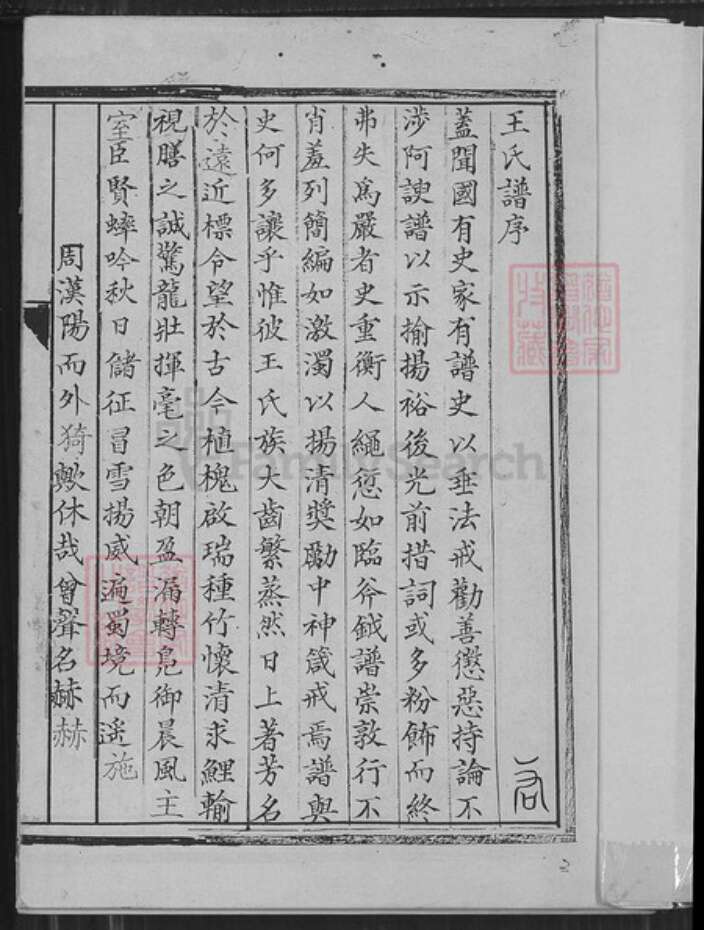 王氏譜序
蓋聞國有史家有譜史以垂法戒勸善懲惡持論不
涉阿諛譜以示揄揚裕後光前措詞或多粉飾而終
弗失為嚴者史重衡人繩愆如臨斧鉞譜崇敦行不
肖羞列簡編如激濁以揚清獎勵中神箴戒焉譜與
史何多讓乎惟彼王氏族大齒繁蒸然日上著芳名
於遠近標令望於古今植槐啟瑞種竹懷清求鯉輸
視膳之誠驚龍壯揮毫之色朝盈漏轉鳧御晨風主
室臣賢蟀吟秋日儲征冒雪揚威遍蜀境而遙施
周漢陽而外猗歟休哉曾聲名赫赫
FamilySearch
2